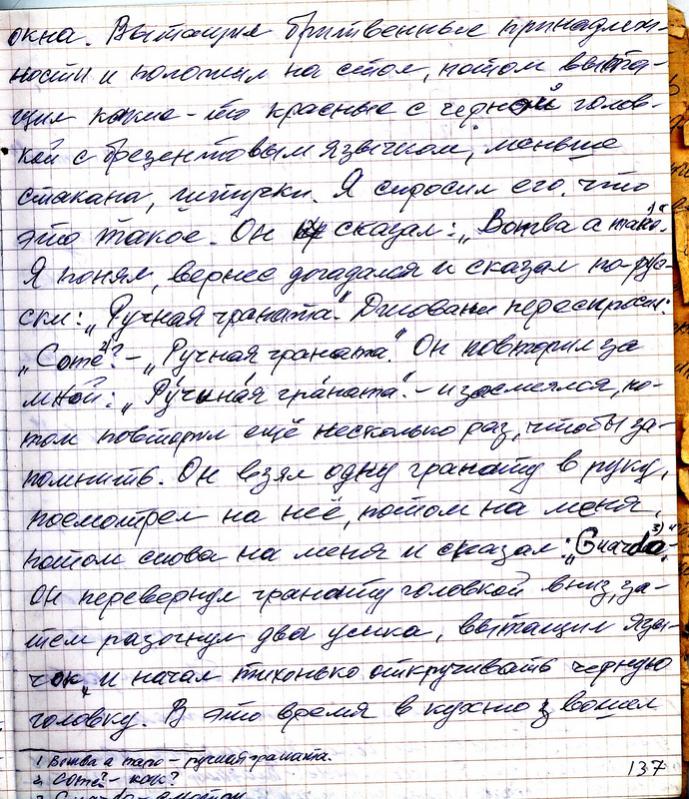 окна. Вытащил бритвенные принадлеж-
ности и положил на стол, потом выта-
щил какие-то красные с черной голов-
кой с брезентовым язычком, меньше
стакана, штучки. Я спросил его, что
это такое. Он сказал: „Вотва а мано“.1)
Я понял, вернее догадался и сказал по-рус-
ски: „Ручная граната“. Джовани переспросил:
„Come2)?“ – „Ручная граната“. Он повторил за
мной: „Ру́чная гра́ната“. – и засмеялся, по-
том повторил ещё несколько раз, чтобы за-
помнить. Он взял одну гранату в руку,
посмотрел на неё, потом на меня,
потом снова на меня и сказал: „Guarda3)“.
Он перевернул гранату головкой вниз, за-
тем разогнул два усика, вытащил язы-
чок и начал тихонько откручивать черную
головку. В это время в кухню вошел
1 Вотва а мано – ручная граната.
2 Come? – как?
3 Guarda – смотри
137